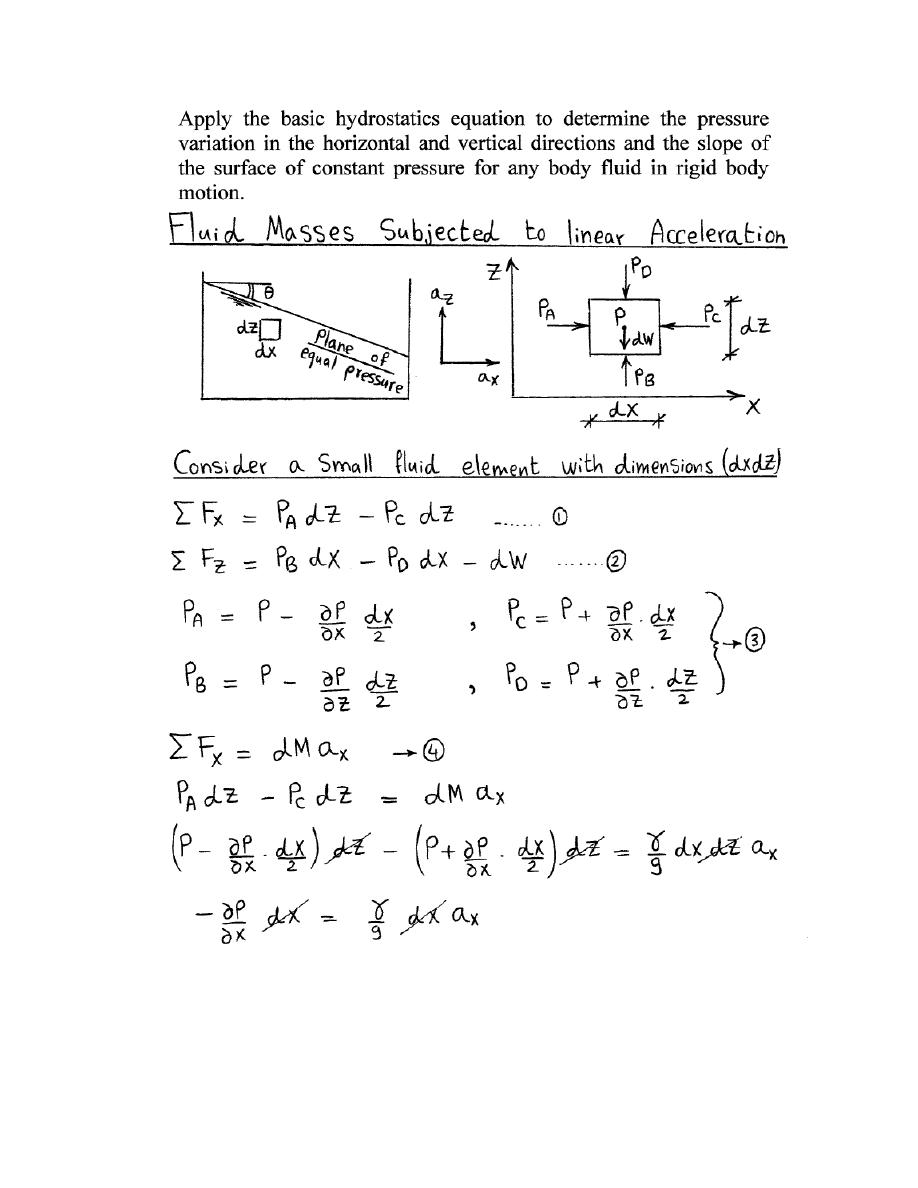 Apply the basic hydrostatics equation to determine the pressure
variation in the horizontal and vertical directions and the slope of
the surface of constant pressure for any body fluid in rigid body
motion.
Fluid Masses Subjected to linear Acceleration
θ
dz
dx
Plane of
equal pressure
az
ax
Z
PD
PA
P
dW
Pc
dz
PB
X
dx
Consider a Small fluid element with dimensions (dxdz)
Σ Fx = PA dz - Pc dz ....... ①
Σ Fz = PB dx - PD dx - dW ....... ②
PA = P - ∂P/∂x dx/2 , Pc = P + ∂P/∂x . dx/2
→ ③
PB = P - ∂P/∂z dz/2 , PD = P + ∂P/∂z . dz/2
Σ Fx = dM ax → ④
PA dz - Pc dz = dM ax
(P - ∂P/∂x . dx/2) dz - (P + ∂P/∂x . dx/2) dz = γ/g dx dz ax
- ∂P/∂x dx = γ/g dx ax